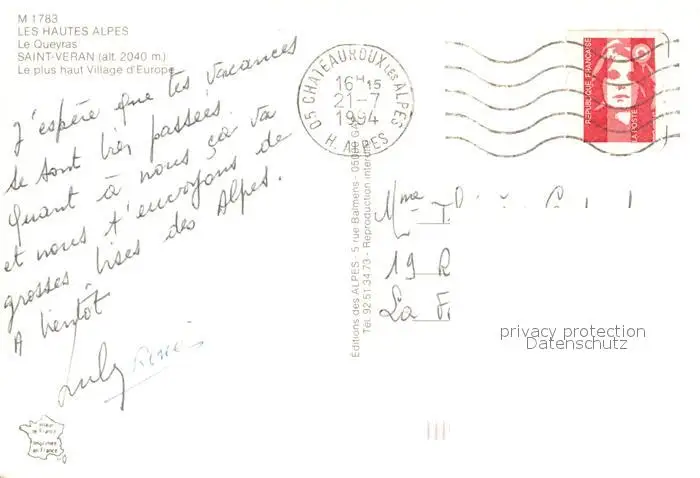 M 1783
LES HAUTES ALPES
Le Queyras
SAINT-VERAN (alt. 2040 m.)
Le plus haut Village d'Europe
J'espère que tes vacances
se sont bien passées.
Quant à nous ça va
et nous t'envoyons de
grosses bises des Alpes.
A bientôt
05 CHATEAUROUX LES ALPES
16H15
21-7
1994
H. ALPES
REPUBLIQUE FRANÇAISE
LA POSTE
Editions des ALPES - 5 rue Balmens - 05000 GAP
Tél. 92.51.34.73 - Reproduction interdite
Mme
19 R
La F
privacy protection
Datenschutz
de France
Imprimée
en France